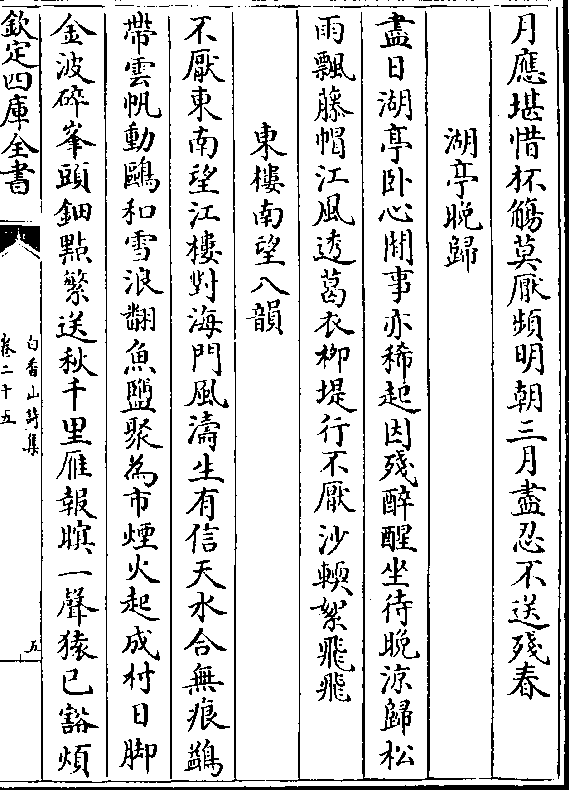 月應堪惜杯觴莫厭頻明朝三月盡忍不送殘春
湖亭晚歸
盡日湖亭卧心閒事亦稀起因殘醉醒坐待晚涼歸松
雨飄藤帽江風透葛衣栁堤行不厭沙輭絮飛飛
東樓南望八韻
不厭東南望江樓對海門風濤生有信天水合無痕鷁
帶雲帆動鷗和雪浪翻魚鹽聚為市煙火起成村日脚
金波碎峯頭鈿點繁送秋千里雁報暝一聲猿已豁煩
欽定四庫全書
白香山詩集
卷二十五
五